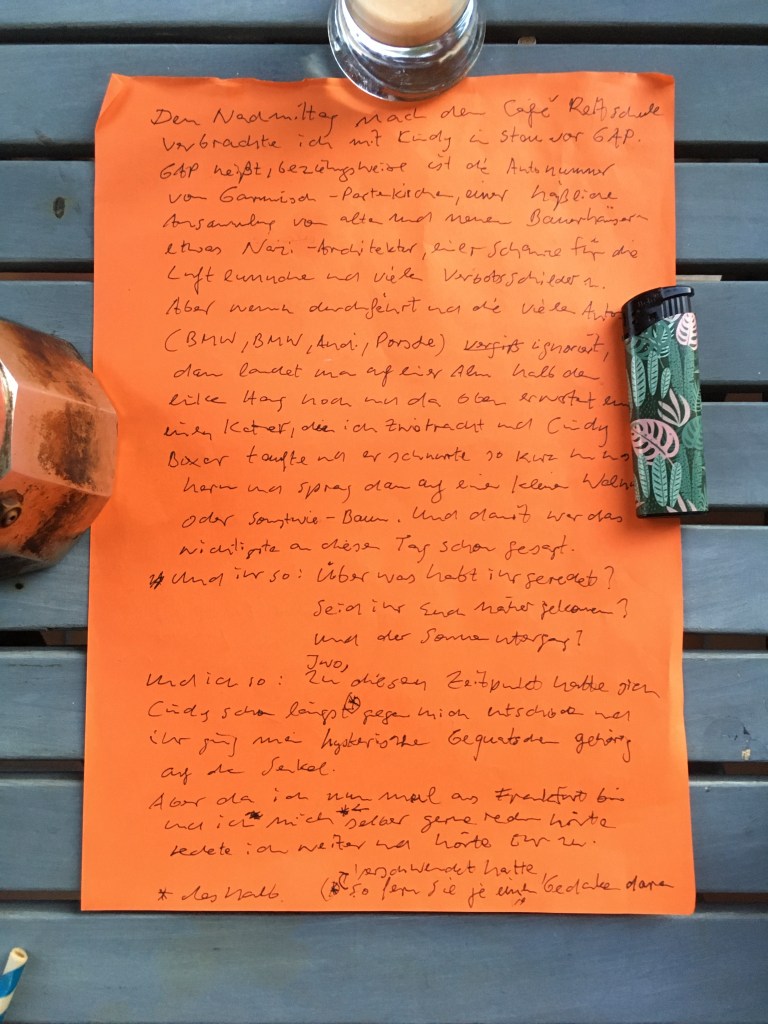 Den Nachmittag nach dem Café Reitschule
verbrachte ich mit Cindy in Stau vor GAP.
GAP heißt, beziehungsweise ist die Autonummer
von Garmisch-Partenkirchen, einer häßlichen
Ansammlung von alten und neuen Bauernhäusern
etwas Nazi-Architektur, einer Schanze für die
Luft und vielen Verbotsschildern.
Aber wenn durchfährt und die vielen Autos
(BMW, BMW, Audi, Porsche) ignoriert,
dann landet man auf einer Alm halb den
linken Hang hoch und da oben erwartet einen
einen Kater, den ich Zwotracht und Cindy
Boxer taufte und er schnurrte so kurz um uns
herum und sprang dann auf einen kleinen
oder sonstwie-Baum. Und damit war das
wichtigste an diesen Tag schon gesagt.
Und ihr so: Über was habt ihr geredet?
Seid ihr Euch näher gekommen?
Und der Sonnenuntergang?
Und ich so: Zu diesem Zeitpunkt hatte sich
Cindy schon längst * gegen mich entschieden und
ihr ging mein hysterisches Gequatsche gehörig
auf den Senkel.
Aber da ich nun mal aus Frankfurt bin
und ich * mich * selber gerne reden hörte
redete ich weiter und hörte ihr zu.
verschwendet hatte,
* deshalb. (* So fern Sie je einen Gedanken daran